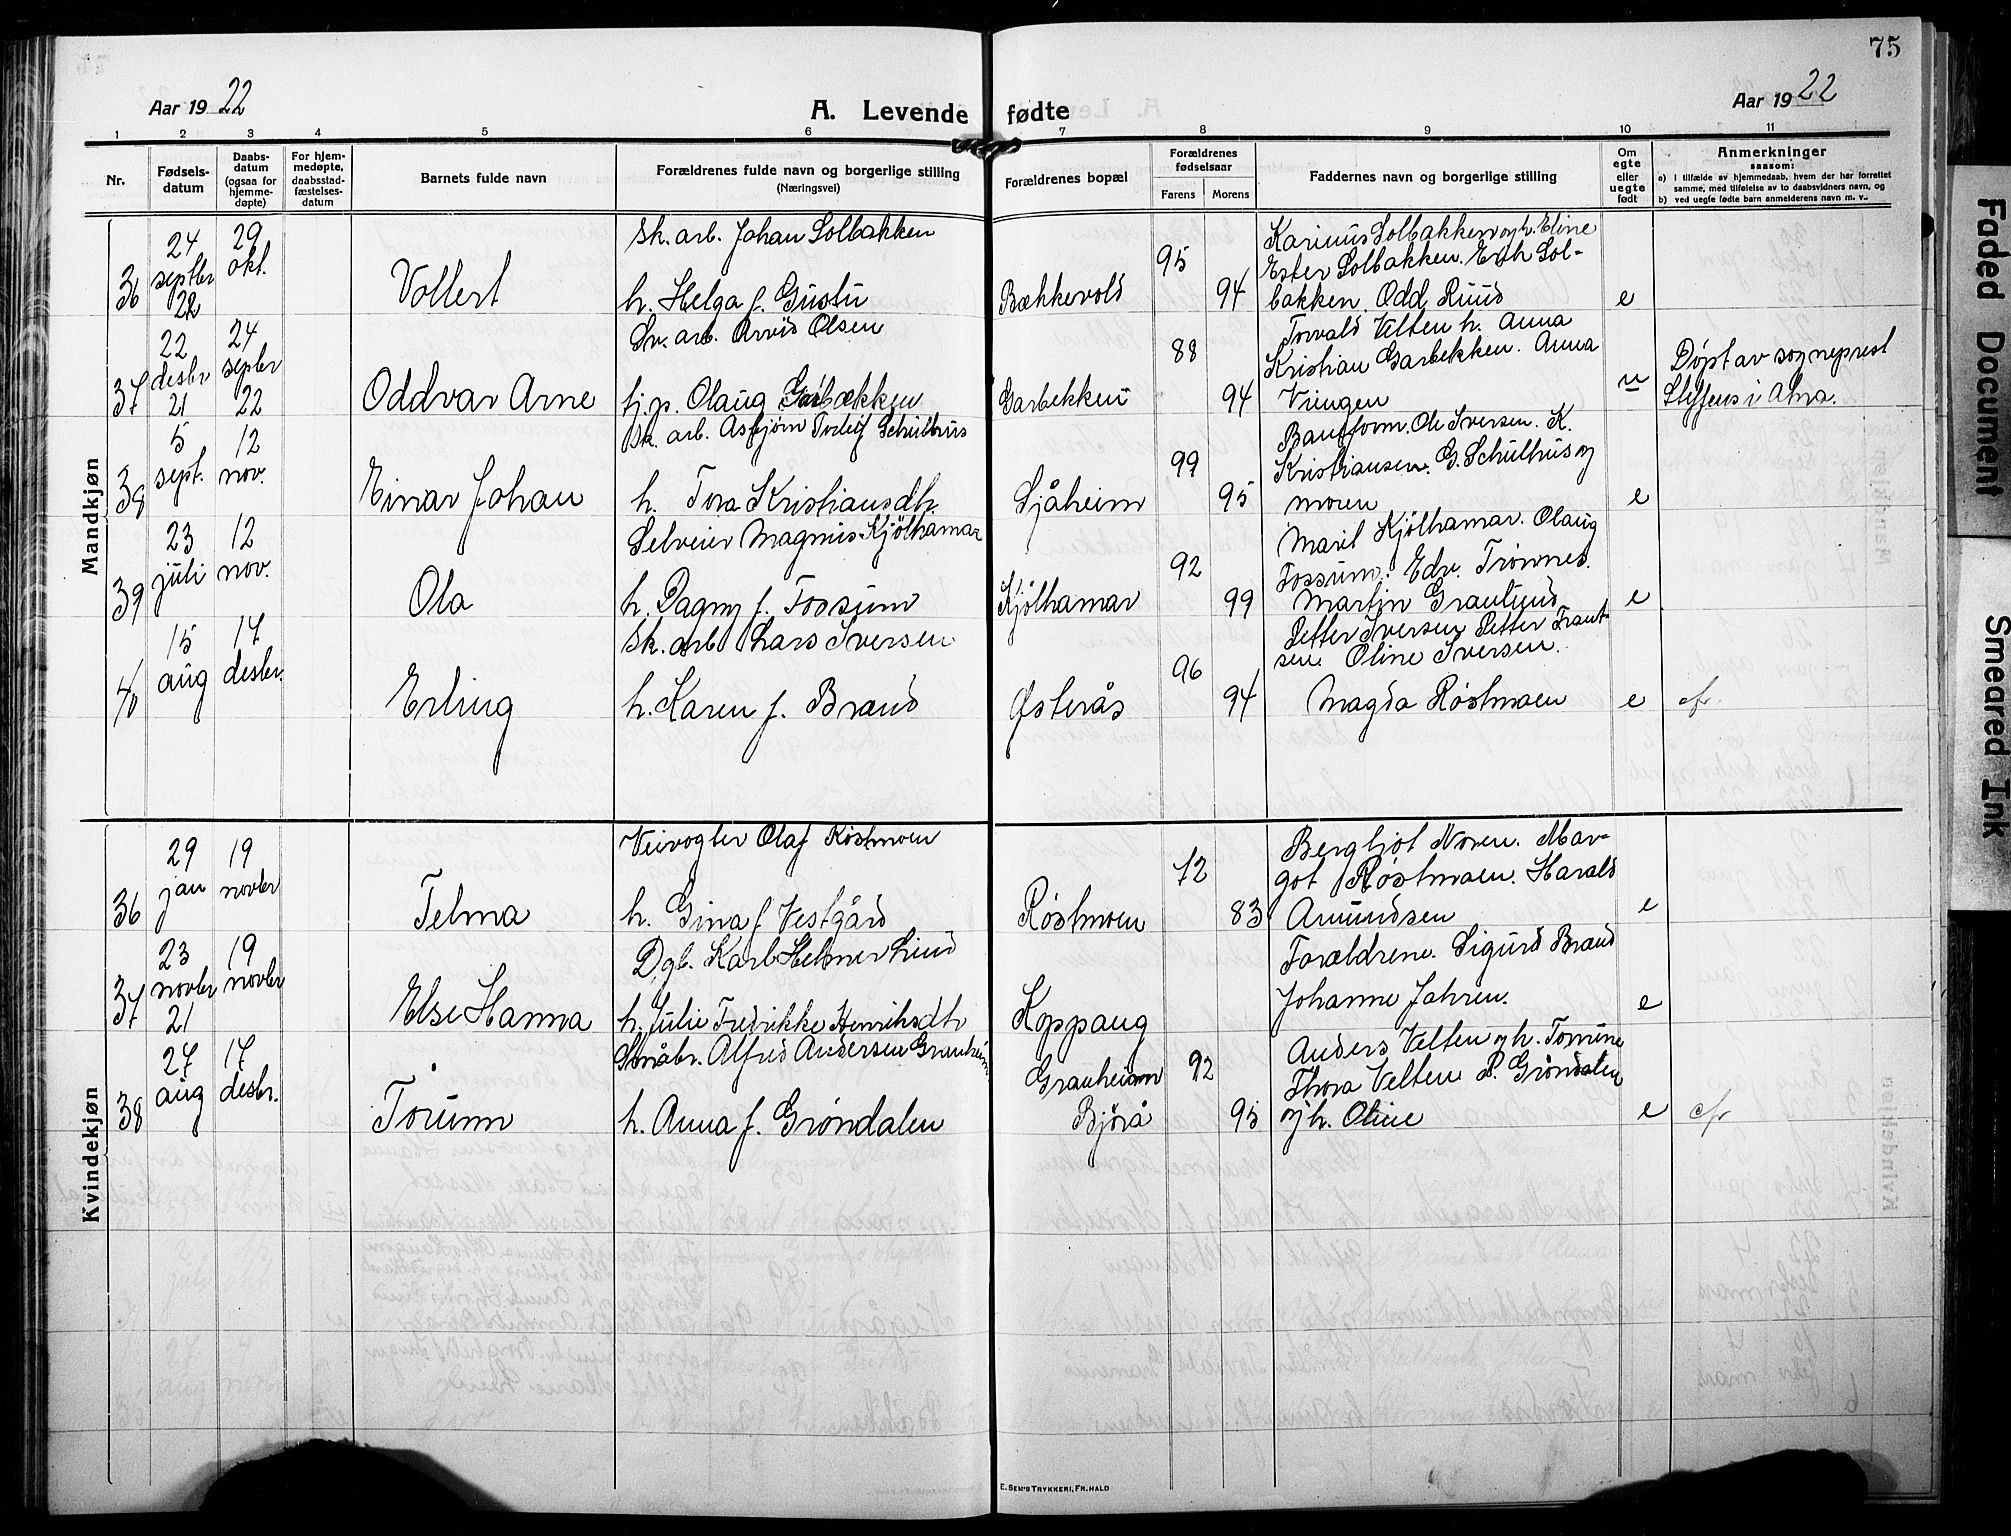 75
Aar 1922
A. Levende fødte
Aar 1922
1 2 3 4 5 6 7 8 9 10 11
Nr.
Fødsels-
datum
Daabs-
datum
(ogsaa for
hjemme-
døpte)
For hjem-
medøpte,
daabsstad-
fæstelses-
datum
Barnets fulde navn
Forældrenes fulde navn og borgerlige stilling
(Næringsvei)
Forældrenes bopæl
Forældrenes
fødselsaar
Farens Morens
Faddernes navn og borgerlige stilling
Om
egte
eller
uegte
født
Anmerkninger
saasom:
a) i tilfælde av hjemmedaab, hvem der har forrettet
samme, med tilføielse av to daabsvidners navn, og
b) ved uegte fødte barn anmelderens navn m. v.
Mandkjøn
36
24
septbr
22
29
okt.
Vollert
Sk. arb. Johan Solbakken
h. Helga f. Gustu
Bækkevold
95
94
Karinius Solbakken og h. Eline
Ester Solbakken. Erth Sol-
bakken. Odd Ruud
e
37
22
desbr
21
24
septbr
22
Oddvar Arne
Sv. arb. Arvid Olsen
tj.p. Olaug Garbækken
Garbekken
88
94
Torvald Velten h. Anna
Kristian Garbekken. Anna
Vingen
u
Døpt av sogneprest
Steffens i Alna.
38
5
sept.
12
nov.
Einar Johan
Sk. arb. Asbjørn Schulhus
h. Tora Kristiansdtr.
Sjåheim
99
95
Banform. Ole Iversen. K.
Kristiansen. G. Schulhus og
moren
e
39
23
juli
12
nov.
Ola
Selveier Magnus Kjølhamar
h. Dagny f. Fossum
Kjølhamar
92
99
Marit Kjølhamar. Olaug
Fossum. Edv. Trønnes.
Martin Granlund
e
40
15
aug
17
desbr.
Erling
Sk. arb Lars Iversen
h. Karen f. Brand
Østerås
96
94
Petter Iversen Petter Frant-
sen. Oline Iversen.
Magda Røstmoen
e
cfr.
Kvindekjøn
36
29
jan
19
novbr
Telma
Veivogter Olaf Røstmoen
h. Gina f Vestgård
Røstmoen
72
83
Bergljot Noren. Mar-
got Røstmoen. Harald
Amundsen
e
37
23
novbr
21
19
novbr
Else Hanna
Dgl. Karl Helmer Lund
h. Julie Fredrikke Henriksdtr
Koppang
Forældrene. Sigurd Brand
Johanne Jahren.
e
38
27
aug
17
desbr.
Torunn
Småbr. Alfred Andersen Granheim
h. Anna f. Grøndalen
Granheim
Bjørå
92
95
Anders Velten og h. Tomine
Thora Velten P. Grøndalen
og h. Oline
e
cfr
E. SEM'S TRYKKERI, FR. HALD
Faded Document
Smeared Ink